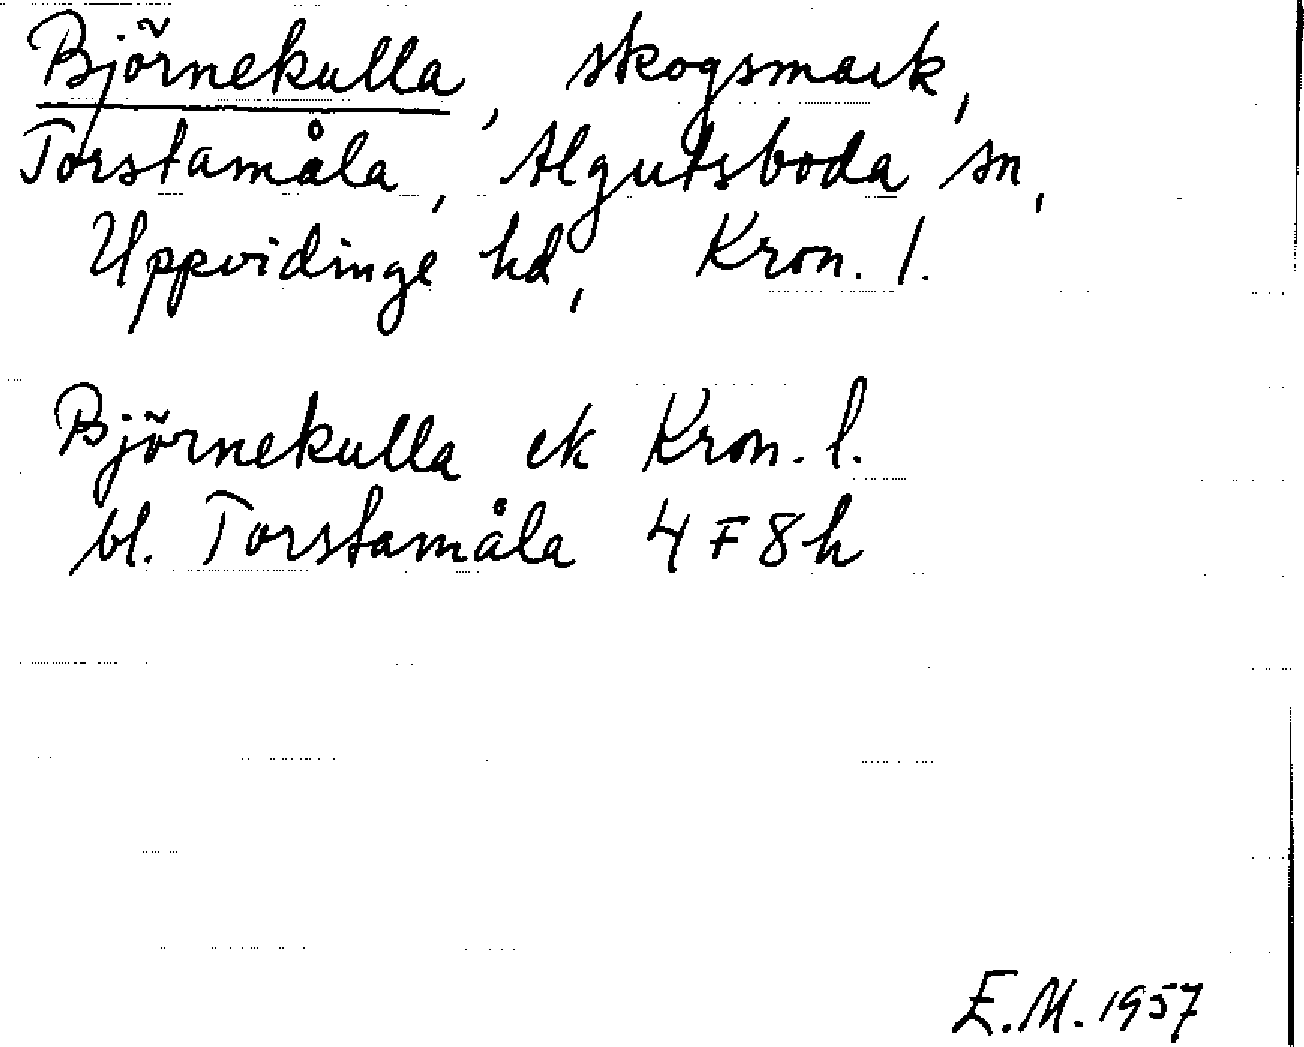 Björnekulla, skogsmark,
Torstamåla, Algutsboda sn,
Uppvidinge hd, Kron. l.
Björnekulla ek Kron. l.
bl. Torstamåla 4 F 8 h
E.M. 1957